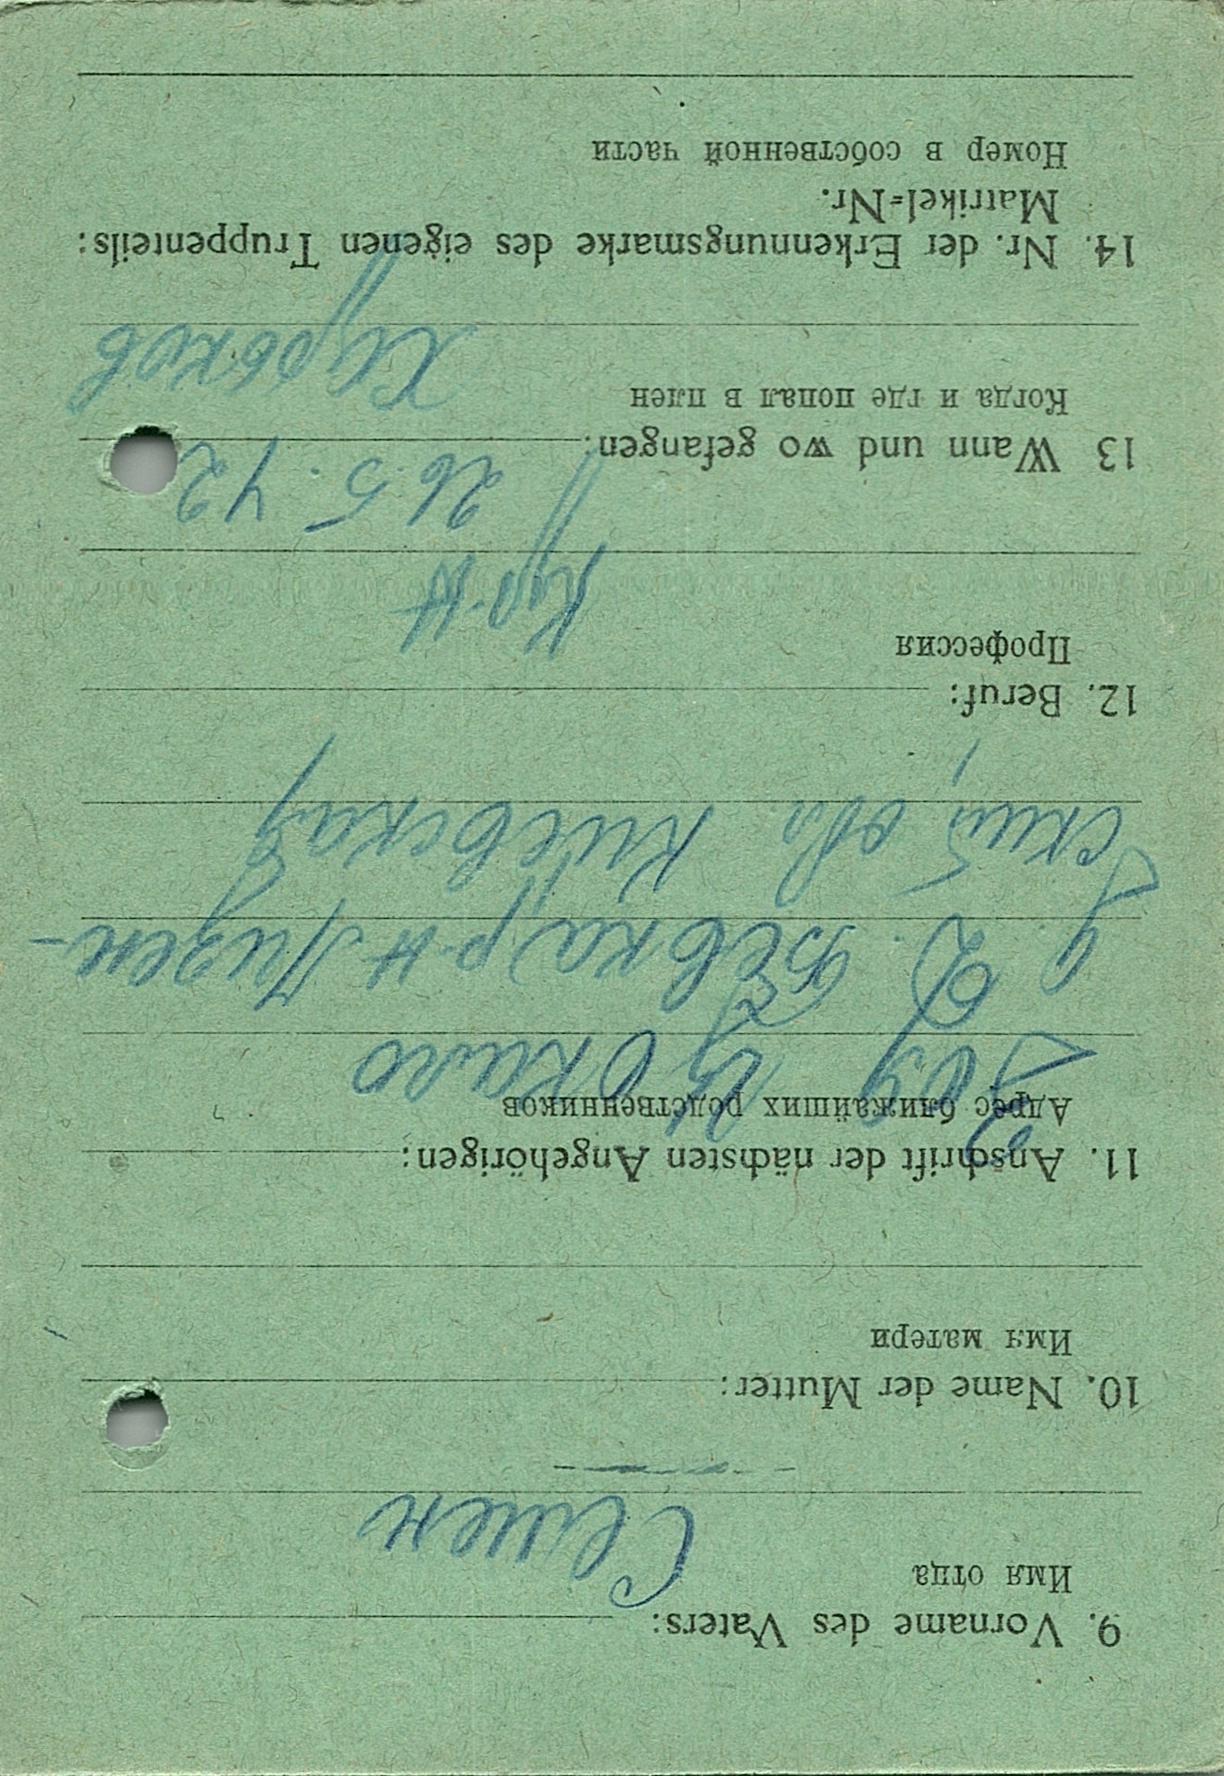 9. Vorname des Vaters:
Имя отца
Семен
10. Name der Mutter:
Имя матери
11. Anschrift der nächsten Angehörigen:
Адрес ближайших родственников
д. р-н Лизен-
ский, обл Киевская
12. Beruf:
Профессия
Кр-н
13 Wann und wo gefangen:
26. 5. 42
Когда и где попал в плен
Харьков
14. Nr. der Erkennungsmarke des eigenen Truppenteils:
Matrikel-Nr.
Номер в собственной части